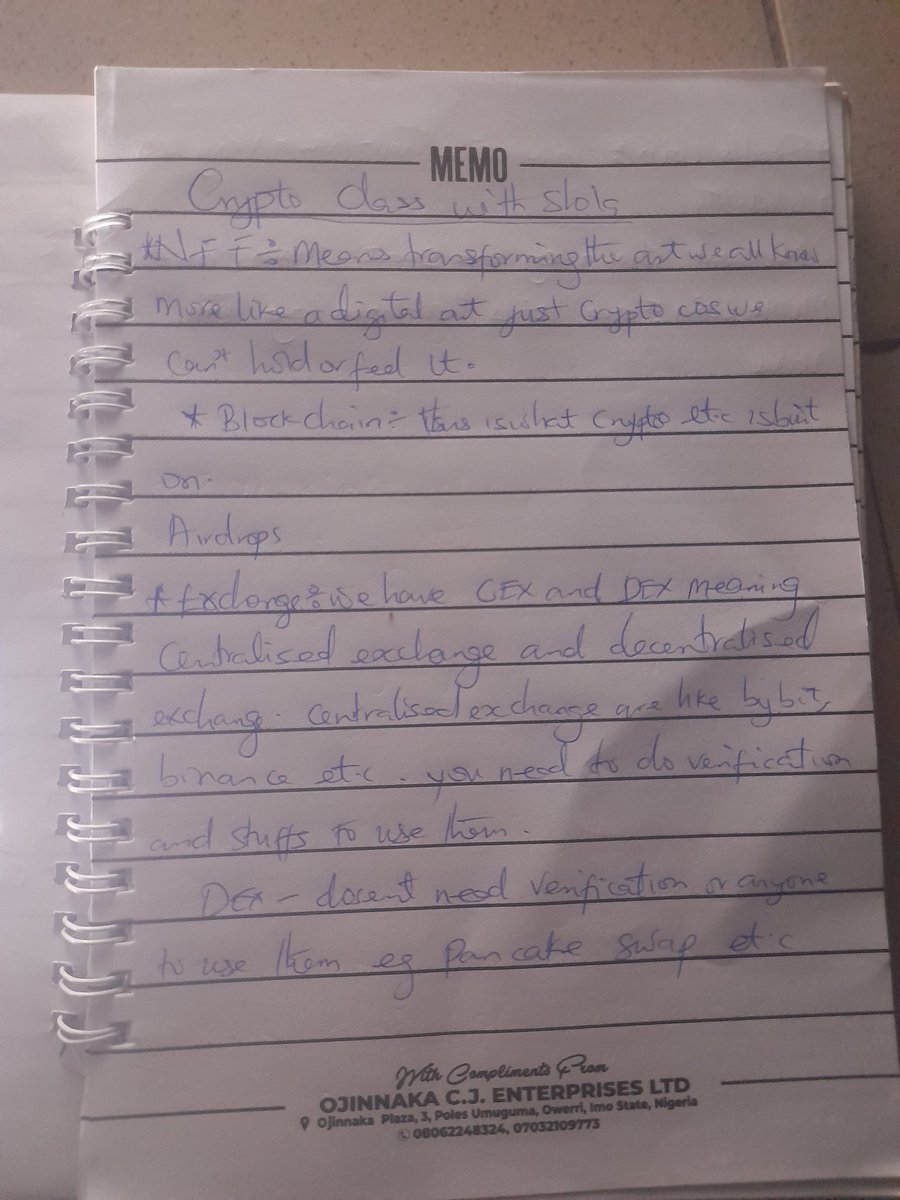 MEMO
Crypto Class with Slols
*NFT: Means transforming the art we all know
more like a digital art just Crypto cos we
can't hold or feel it.
* Blockchain: this is what Crypto etc is built
on.
Airdrops
* Exchange: we have CEX and DEX meaning
Centralised exchange and decentralised
exchang. Centralised exchange are like bybit,
binance etc. you need to do verification
and stuffs to use them.
DEX - dosent need verification or anyone
to use them eg Pancake swap etc
With Compliments From
OJINNAKA C.J. ENTERPRISES LTD
Ojinnaka Plaza, 3, Poles Umuguma, Owerri, Imo State, Nigeria
08062248324, 07032109773